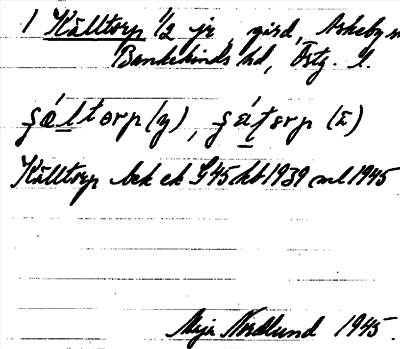 1 Källtorp 1/2 jr, gård, Askeby sn
Bankekinds hd, Östg. l.
şǽltorp (y), şǽltorp (ä)
Källtorp bek ek G45 hbl 1939 ml 1945
Nordlund 1945.